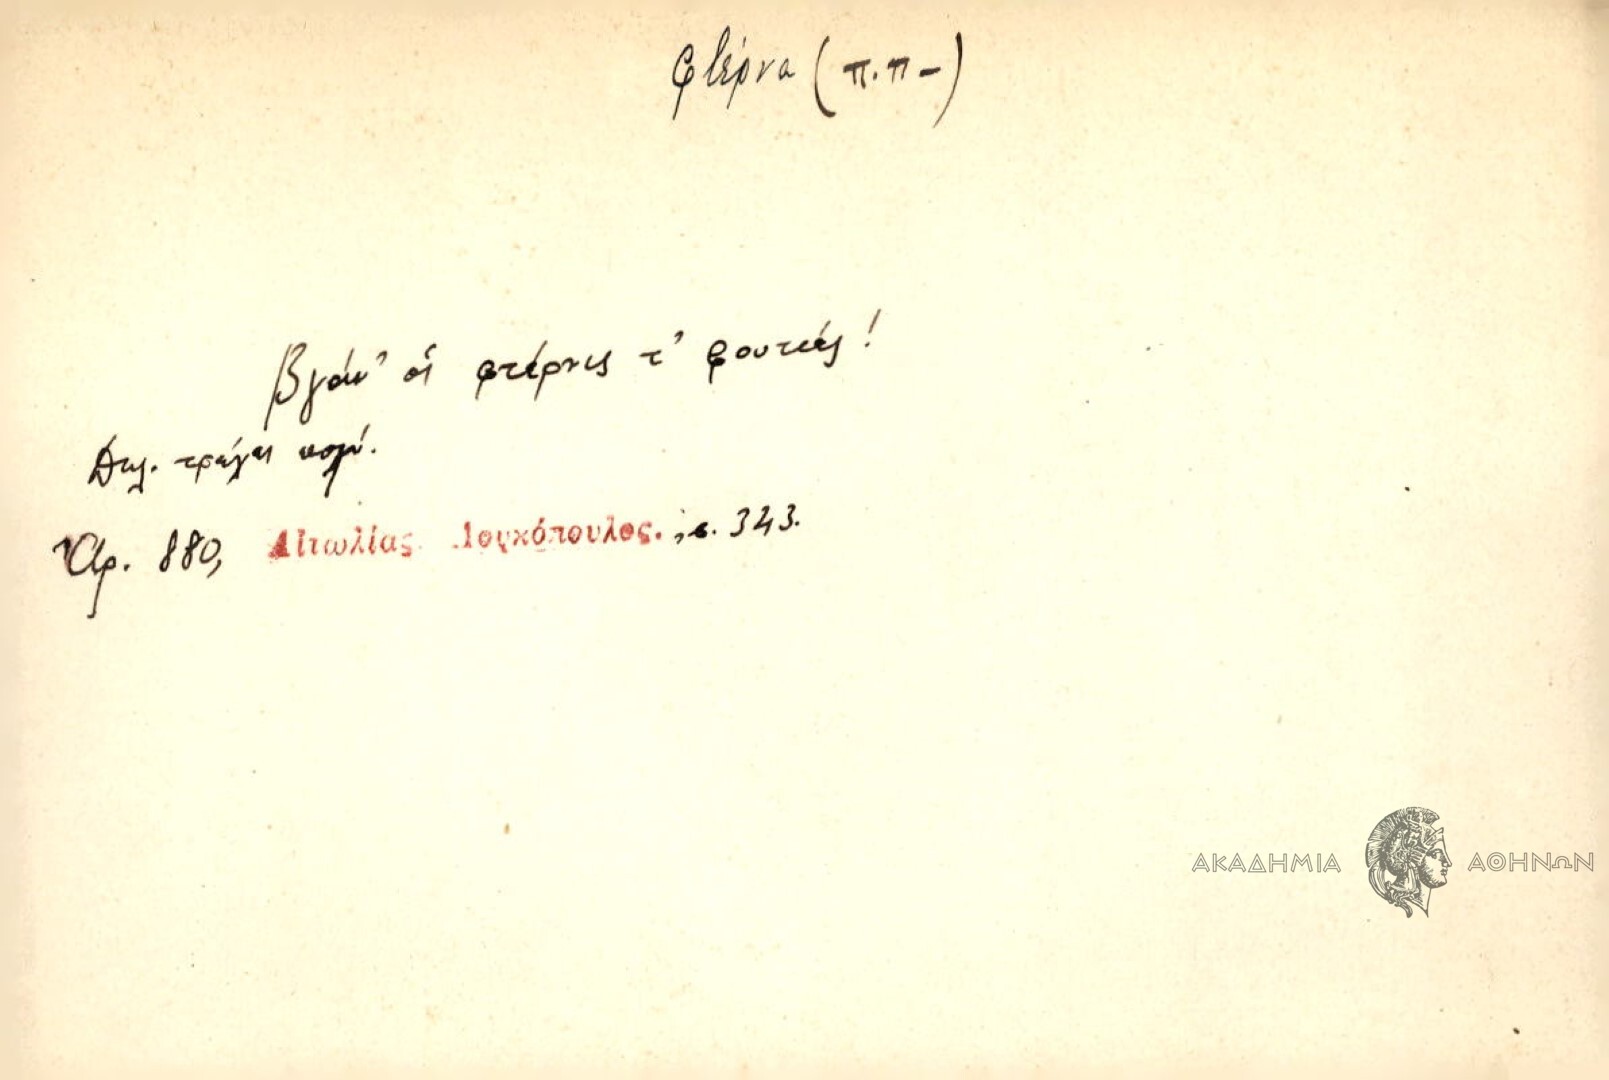 φτέρνα (π.π-)
Βγάν' οἱ φτέρνις τ' φουτιές!
Δηλ. τρέχει πολύ.
Ἀρ. 880, Αἰτωλίας Λουκόπουλος., σ. 343.
ΑΚΑΔΗΜΙΑ ΑΘΗΝΩΝ